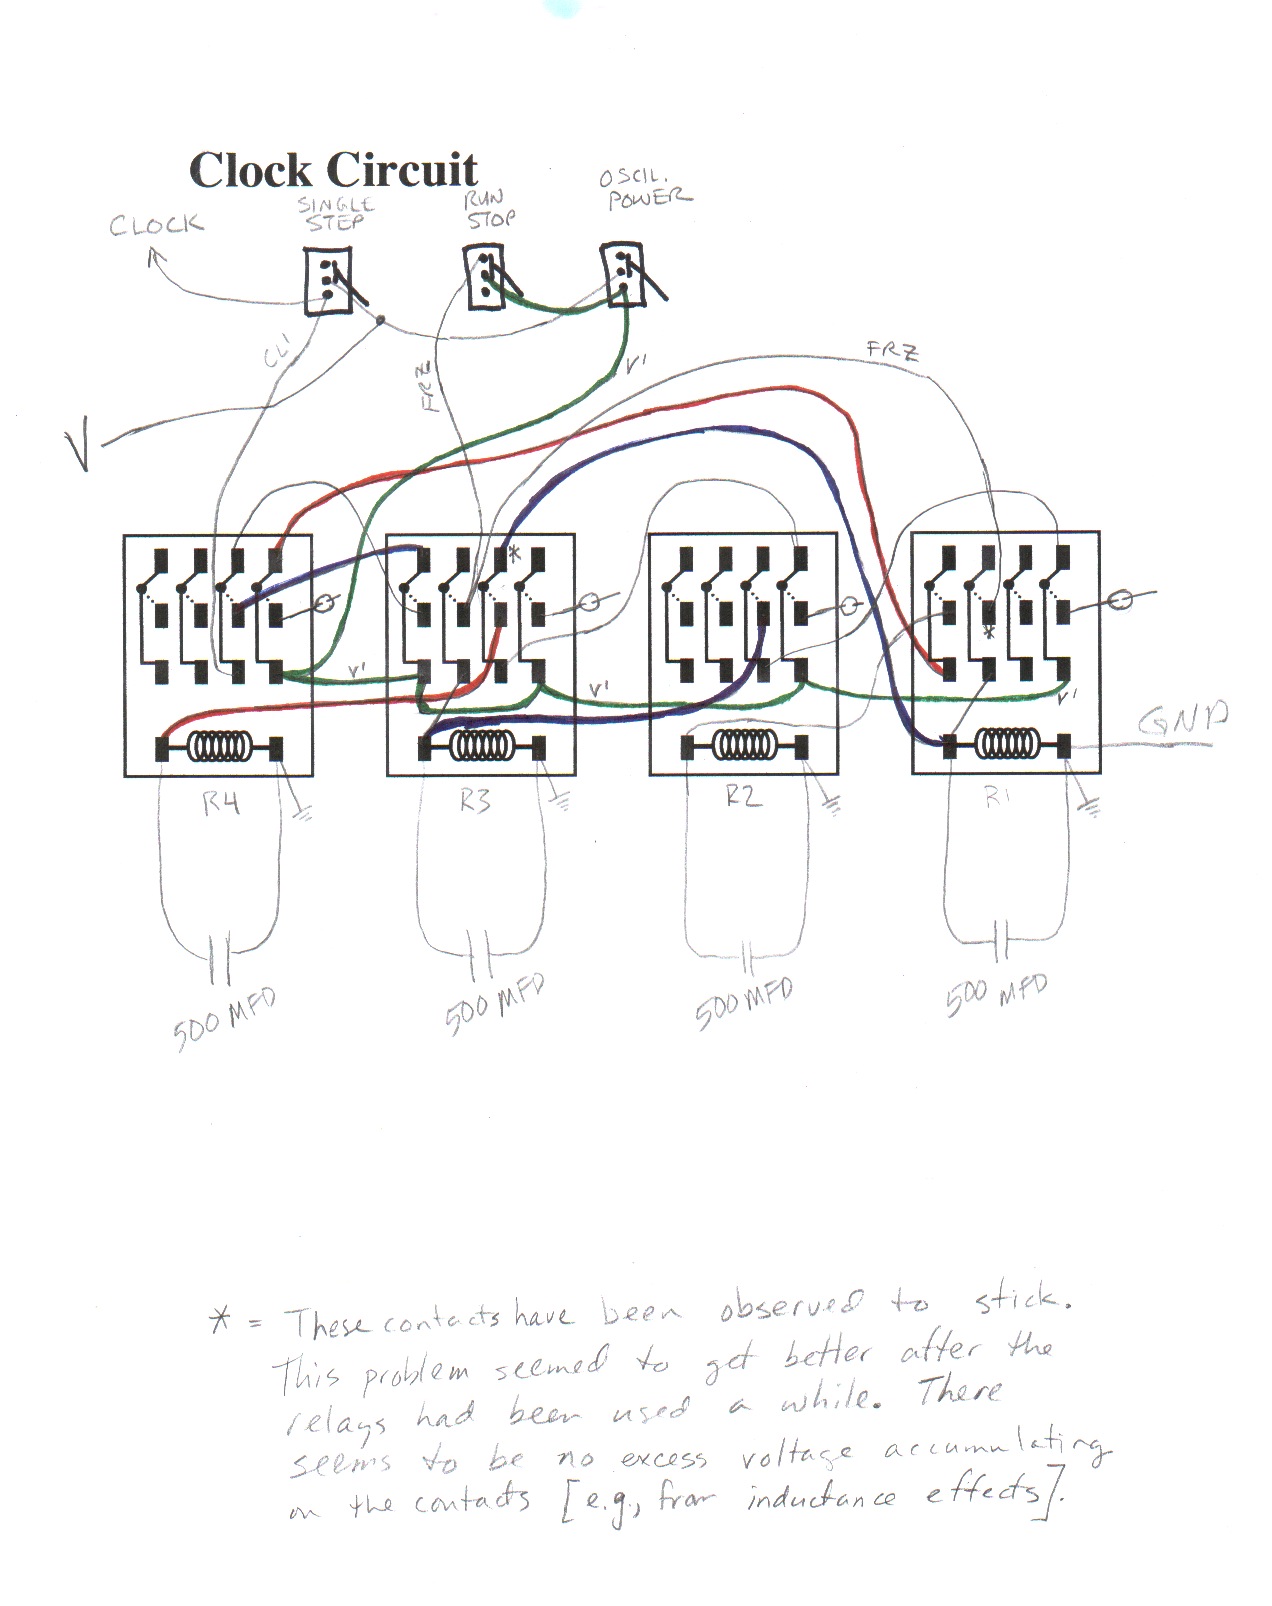 Clock Circuit
CLOCK
SINGLE
STEP
RUN
STOP
OSCIL.
POWER
CL'
FRZ
V'
FRZ
V
*
*
V'
V'
V'
GND
R4
R3
R2
R1
500 MFD
500 MFD
500 MFD
500 MFD
* = These contacts have been observed to stick.
This problem seemed to get better after the
relays had been used a while. There
seems to be no excess voltage accumulating
on the contacts [e.g., from inductance effects].